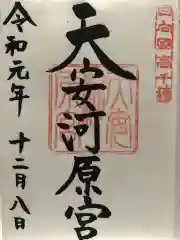 日向國高千穂
天安河原宮
令和元年 十二月八日